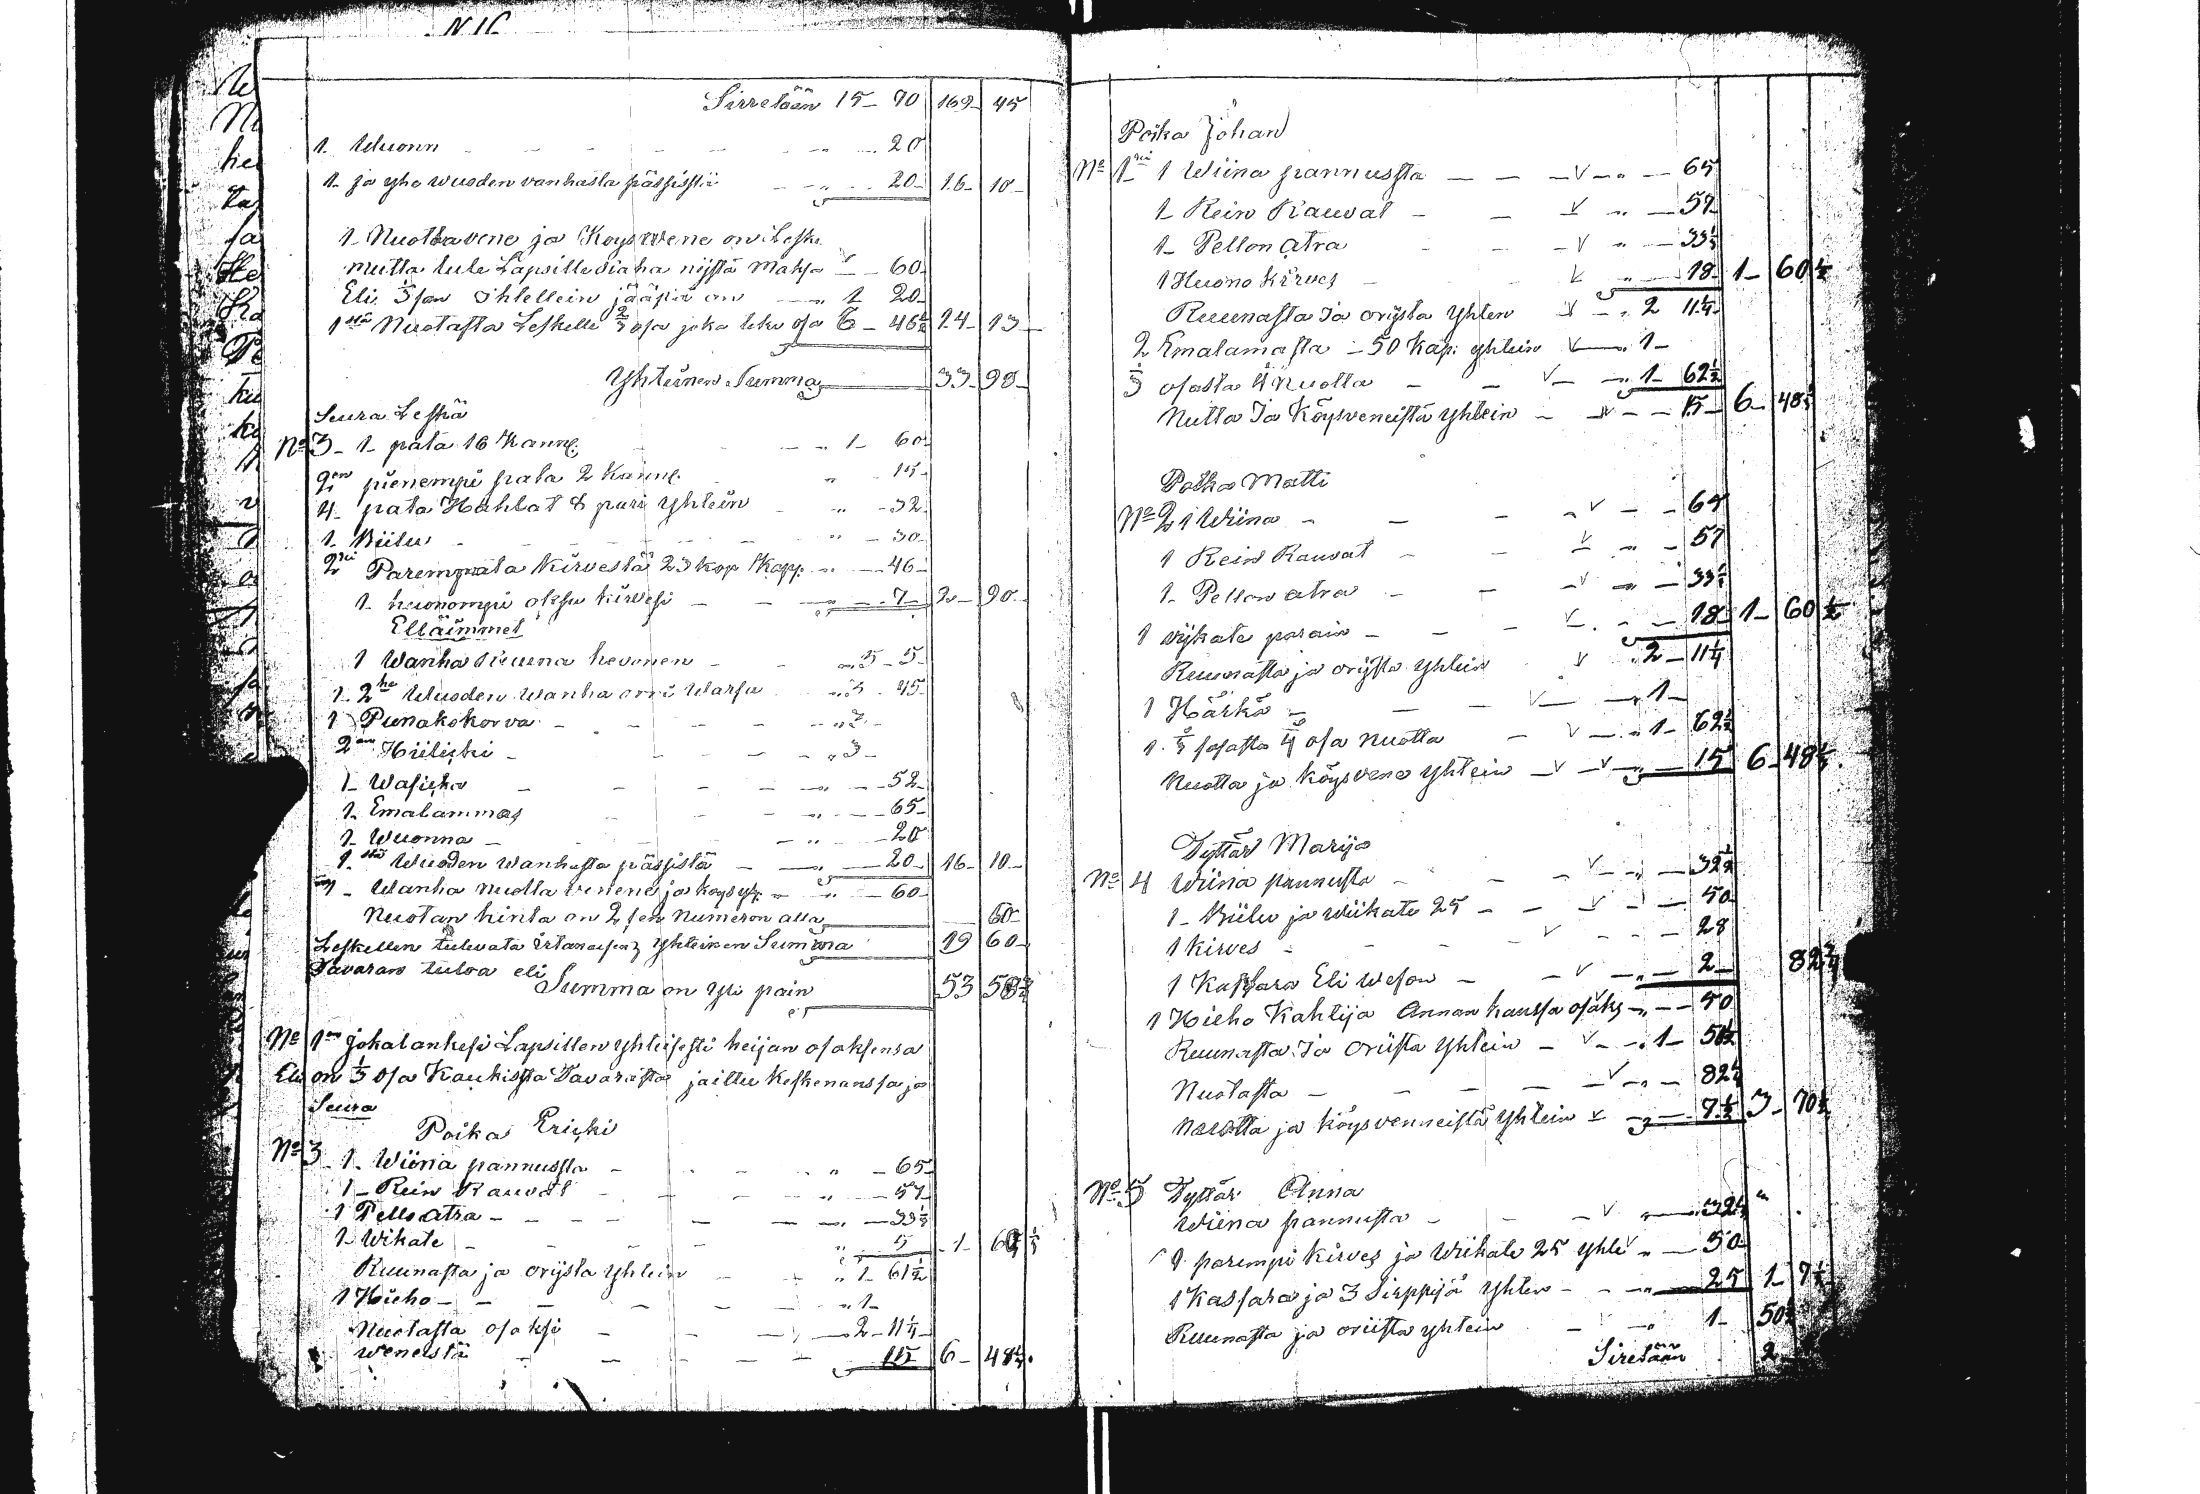 N 16
Sirretään 15 - 70 | 169 - 45
1 Wuonn - - - 20
1 ja yhe wuoden vanhasta pässistä - - 20 - | 16 - 10 -
1 - Nuottavene ja Köysvene on Leske
mutta tule Lapsille siaha niistä maksa - 60
Eli 1/3 san ihtellein jääpiä on - 1 20
1 stä Nuotasta Leskelle 2/3 osa joka teke osa 6 - 46 1/2 | 14 - 13 -
Yhteinen Summa | 33 - 98 -
Seura Leskiä
No 3 - 1 - pata 16 Kann: - 1 - 60
2 en pienempi pata 2 Kann: - 15 -
4 - pata Hahlat 8 pari yhtein - 32
1 - Biilu - - 30
2 xi Parempata kirvestä 23 kop Kapp: - 46 -
1 - huonompi oksu kirvesi - - 7 - | 2 - 90 -
Elläimmet
1 Wanha Ruuna hevonen - - 5 - 5
1 - 2 he Wuoden wanha orri Warsa - 3 - 45
1 Punakokorva - - 3 -
2 en Hiilicki - - 3 -
1 - Wasicka - - 52
1 - Emalammas - - 65
1 - Wuonna - - 20
1 - stä Wuoden wanhasta pässistä - - 20 - | 16 - 10 -
Wanha nuotta venene ja koysys: - - 60
Nuotan hinta on 2 sen Numeron alla - | 60
Leskellen tulevata irtanaisen yhteinen Summa | 19 | 60
Tavaran tuloa eli
Summa on yli päin | 53 | 58 3/4
No 1 en jokalankesi Lapsillen yhteisesti heijan osaksensa
Eli on 1/3 osa Kaukista Tavarasta jaittu keskenanssa ja
Seura
Poika Ericki
No 3 1 - Wiina pannussta - - 65
1 - Rein Rauvat - - 57
1 Pello atra - - - 33 1/2
1 - Wikate - - 5 | 1 - 60 1/2
Ruunasta ja orijsta yhtein - - 1 - 61 1/2
1 Hieho - - - 1 -
Nuotasta osaksi - - 2 - 11 1/4
weneistä - - - 15 | 6 - 48 1/2
Poika Johan
No 1 xi 1 Wiina pannussta - - V - 65
1 Rein Rauvat - - V - 57
1 - Pellon atra - V - 33 1/2
1 Huono kirves - V - 18 | 1 - 60 1/2
Ruunasta Ja orijsta yhten V - 2 11 1/4
2 Emalamasta - 50 kap: yhtein V - 1 -
1/3 osasta 4 Nuotta - - V - 1 - 62 1/2
Nutta Ja Köysveneistä yhtein - V - 15 | 6 - 48 1/2
Poika Matti
No 2 1 Wiina - - - V - - 65
1 Rein Rauvat - - V - 57
1 - Pellon atra - - V - 33 1/2
1 wijkate parain - - - V - 18 | 1 - 60 1/2
Ruunasta ja orijsta yhtein V 2 - 11 1/4
1 Härkä - - V - 1 -
1 1/3 sosasta 1/4 osa Nuotta - V - 1 - 62 1/2
Nuotta ja köysvene yhtein - V - V - 15 | 6 - 48 1/2
Tyttär Marija
No 4 Wiina pannusta - - - V - 32 1/2
1 - Biilu ja wiikate 25 - - V - - 50
1 kirves - - - V - - 28
1 Kassara Eli weson - - V - - 2 - | 82 3/4
1 Hieho Kahtija Annan kanssa osaks - - - 50
Ruunasta Ja oriista yhtein - V - 1 - 50 1/2
Nuotasta - - - - V - - 82 1/2
Nuotta ja köysvenneistä yhtein V - - 7 1/2 | 3 - 70 1/2
No 5 Tyttär Anna
Wiina pannusta - - - V - 32 1/2
1 parempi kirves ja wiikate 25 yhte V - 50
1 Kassara ja 3 Sirppijä yhten - - - 25 | 1 - 7 1/2
Ruunasta ja oriista yhtein - - - 1 - 50 1/2
Siretään 2